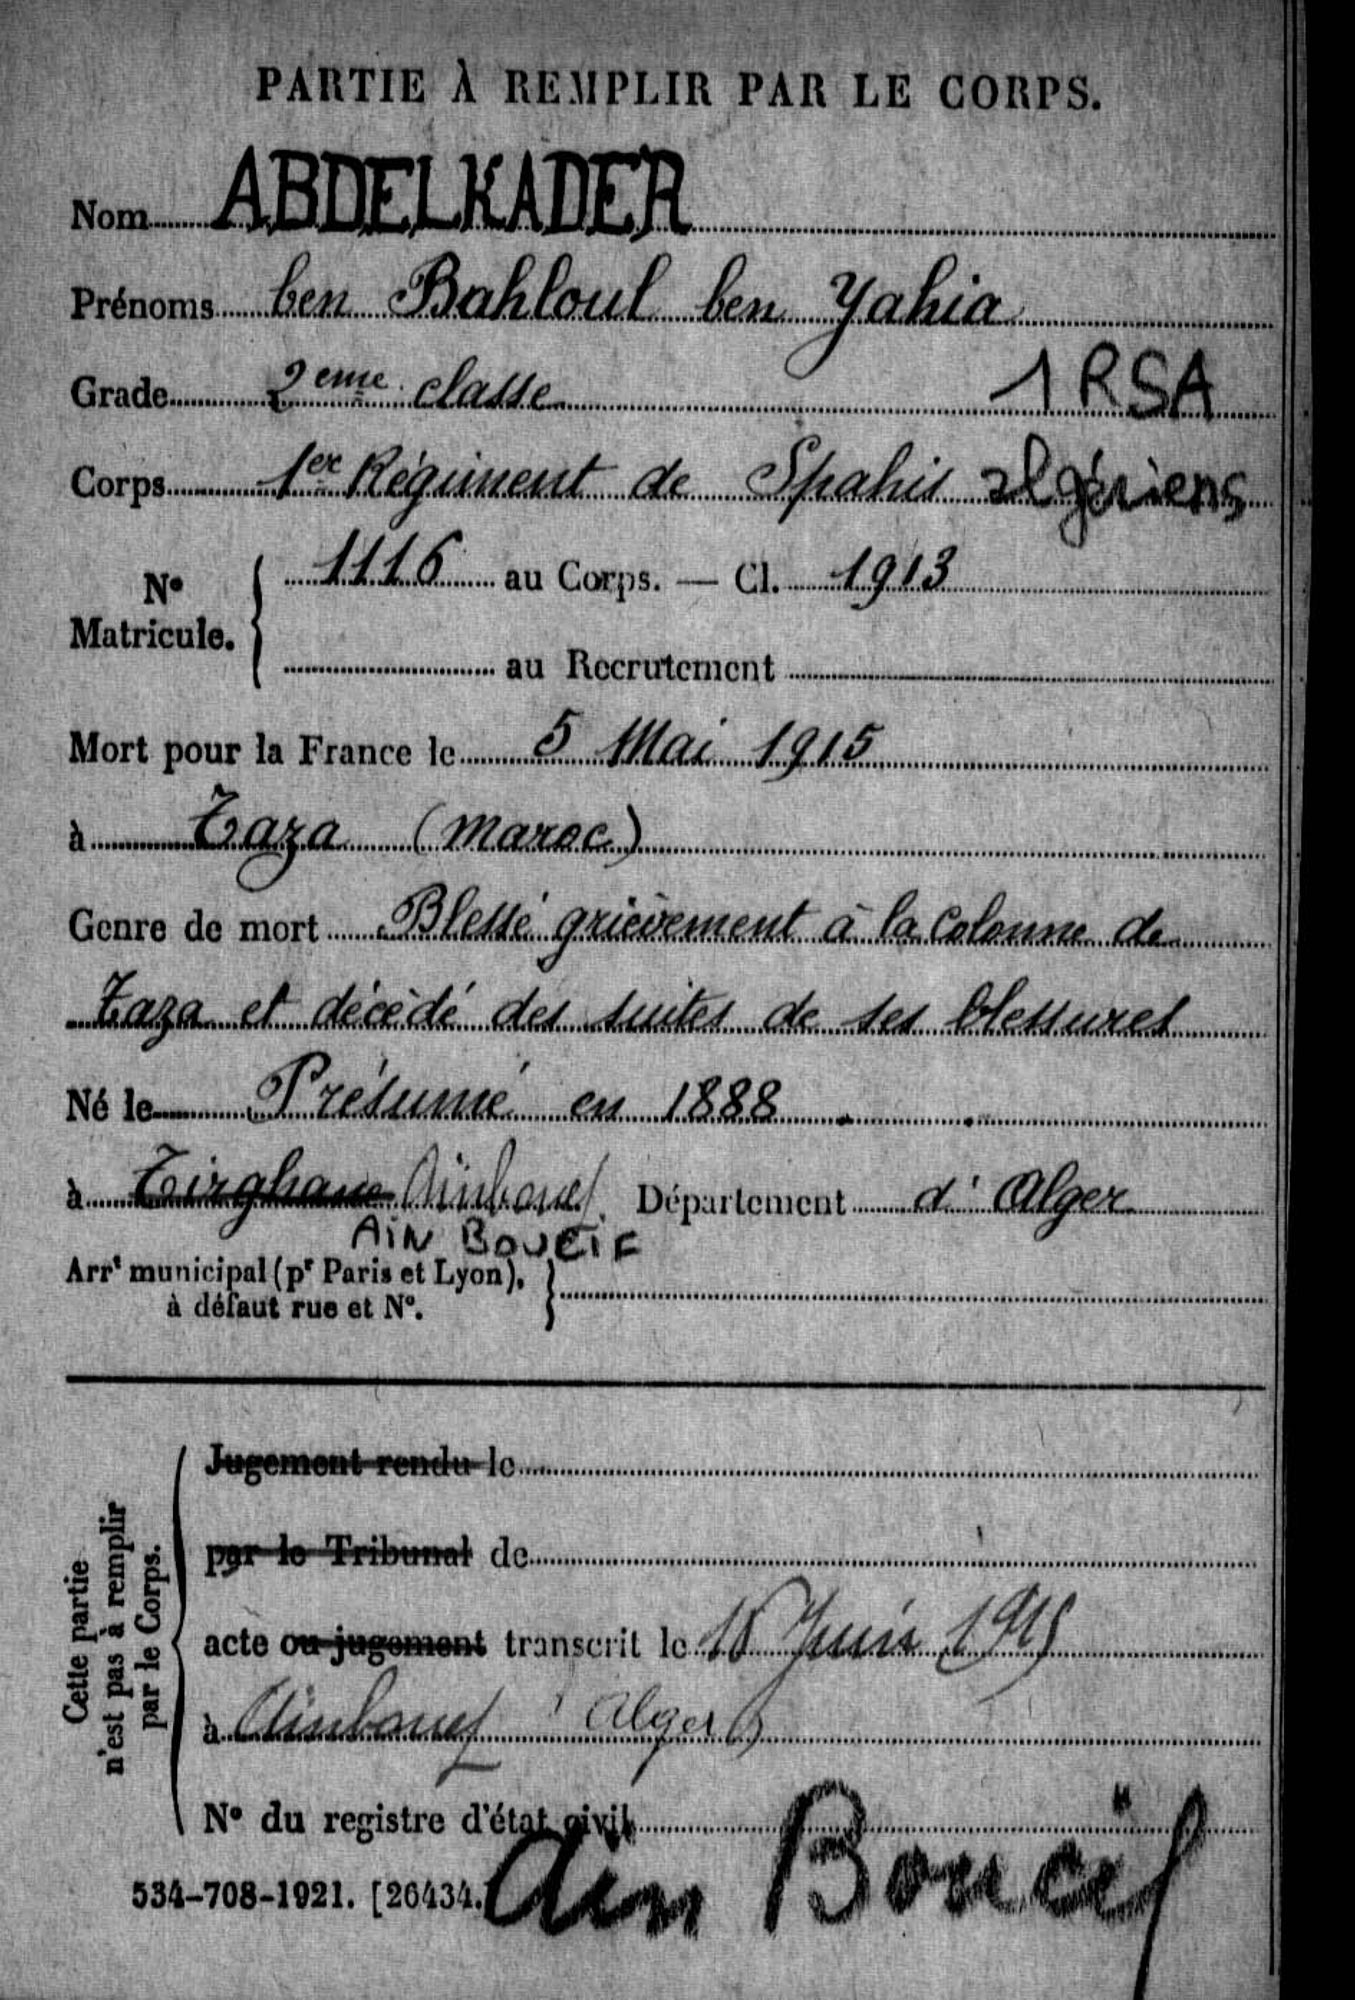 PARTIE À REMPLIR PAR LE CORPS.
Nom ABDELKADER
Prénoms ben Bahloul ben Yahia
Grade 2eme classe 1 RSA
Corps 1er Régiment de Spahis algériens
No Matricule. { 1116 au Corps. — Cl. 1913
au Recrutement
Mort pour la France le 5 Mai 1915
à Taza (maroc)
Genre de mort Blessé grièvement à la Colonne de
Taza et décédé des suites de ses blessures
Né le Présumé en 1888
à Département d'Alger
AIN BOUCIF
Arrt municipal (pr Paris et Lyon), à défaut rue et No. }
Cette partie n'est pas à remplir par le Corps.
Jugement rendu le
par le Tribunal de
acte ou jugement transcrit le Juin
à Alger
No du registre d'état civil
534-708-1921. [26434.]
Ain Boucif